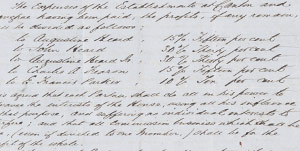 The Expenses of the Establishments at Canton and
having been paid, the profits, if any
is divided as follows;
to Augustine Heard 15 % Fifteen per cent
to John Heard 30 % Thirty per cent
to Augustine Heard Jr 30 % Thirty per cent
to Charles A Fearon 15 % Fifteen per cent
to Francis 10 % Ten per cent
is agreed that each Partner shall do all in his power to
the interests of the House, using all his influence
that purpose, and suffering no individual interests to
and that all Commission business which shall be
(even if devoted to one Member,) shall be for the
of the whole.